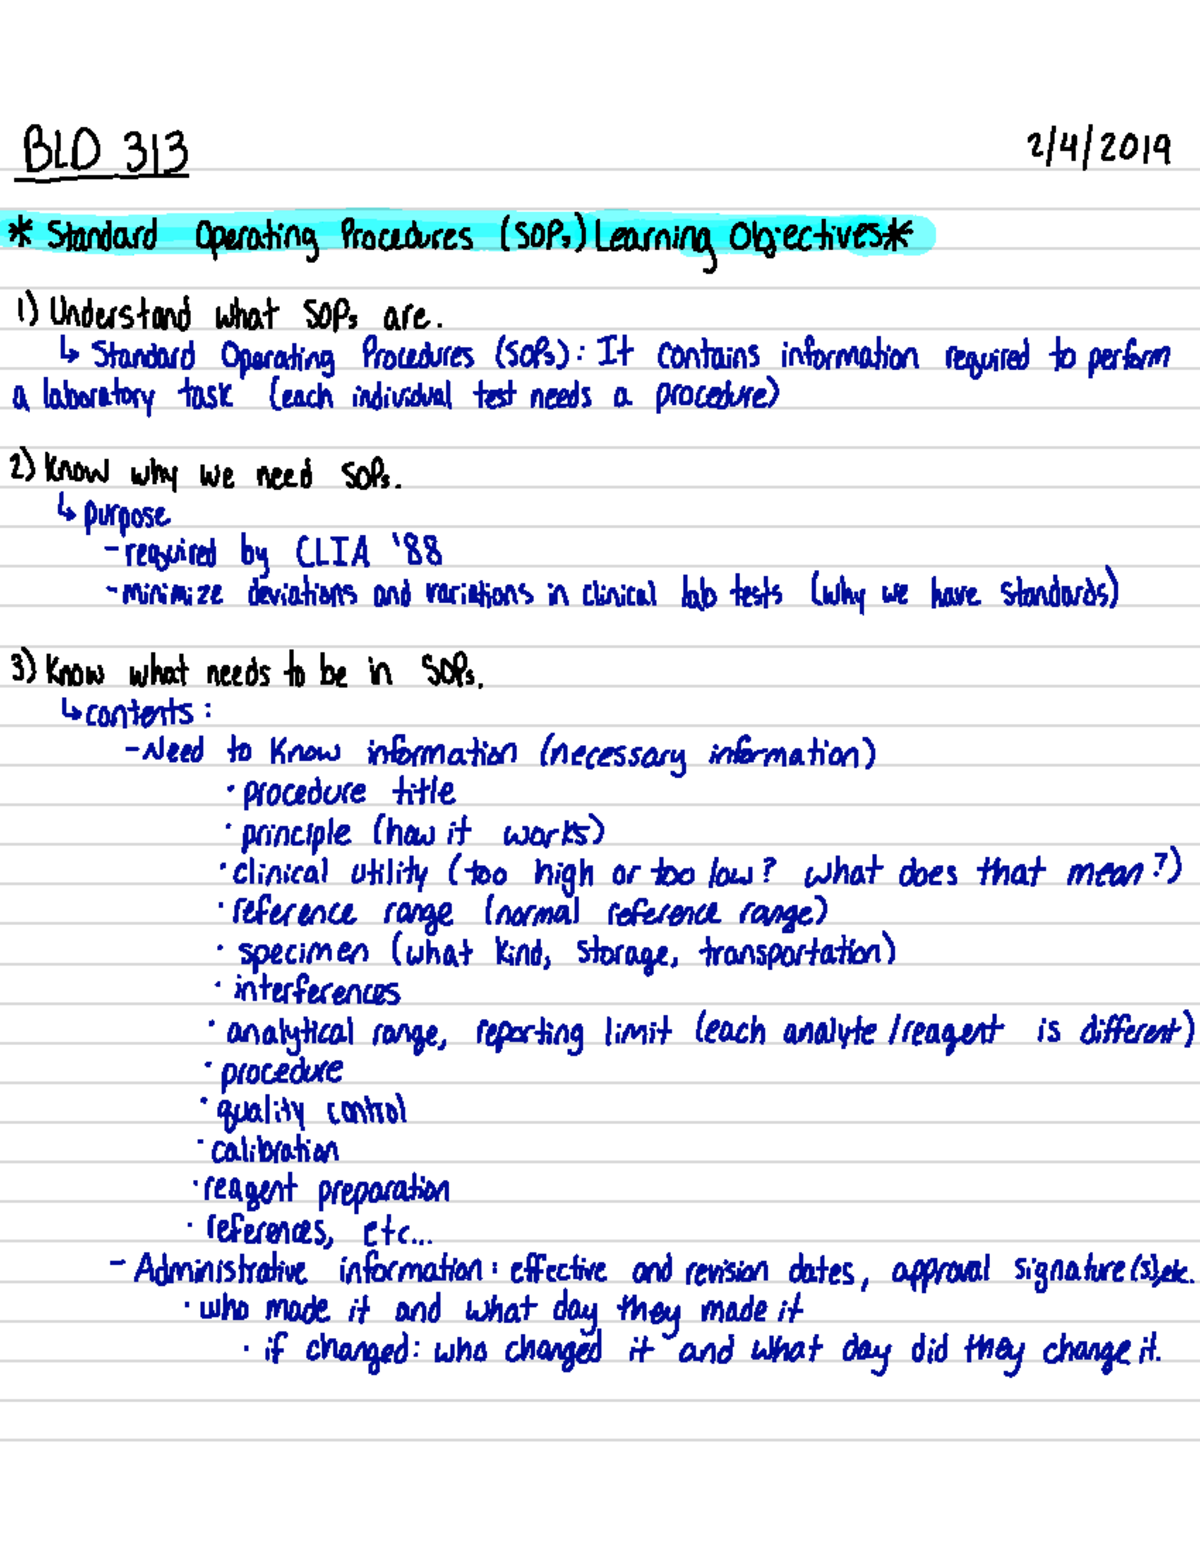 BLD 313
2/4/2019
* Standard Operating Procedures (SOPs) Learning Objectives*
1) Understand what SOPs are.
↳ Standard Operating Procedures (SOPs): It contains information required to perform
a laboratory task (each individual test needs a procedure)
2) Know why we need SOPs.
↳ purpose
- required by CLIA '88
- minimize deviations and variations in clinical lab tests (why we have standards)
3) Know what needs to be in SOPs.
↳ contents:
- Need to Know information (necessary information)
· procedure title
· principle (how it works)
· clinical utility (too high or too low? what does that mean?)
· reference range (normal reference range)
· specimen (what kind, storage, transportation)
· interferences
· analytical range, reporting limit (each analyte/reagent is different)
· procedure
· quality control
· calibration
· reagent preparation
· references, etc...
- Administrative information: effective and revision dates, approval signature(s), etc.
· who made it and what day they made it
· if changed: who changed it and what day did they change it.